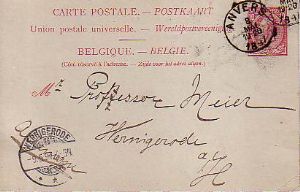 CARTE POSTALE. — POSTKAART
Union postale universelle. — Wereldpostvereeniging
BELGIQUE. — BELGIE.
(Côté réservé à l'adresse. — Zijde voor het adres alleen.)
ANVERS
Mr Professor Meier
Wernigerode
a/H
WERNIGERODE